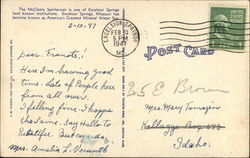 The McCleary Sanitarium is one of Excelsior Springs
best known institutions. Excelsior Springs, Missouri has
become known as America's Greatest Mineral Water
2-10-47
EXCELSIOR SPRINGS
FEB
5 PM
1947
MO.
POST CARD
Dear Francis,!
Here I'm having good
time. Lots of People here
from all over.
I felling fine. I hope
the same. Say Hello to
Best regards,
Mrs. Amelia L.
25 E Brown
Mrs Mary
Kellogg Box
Idaho.